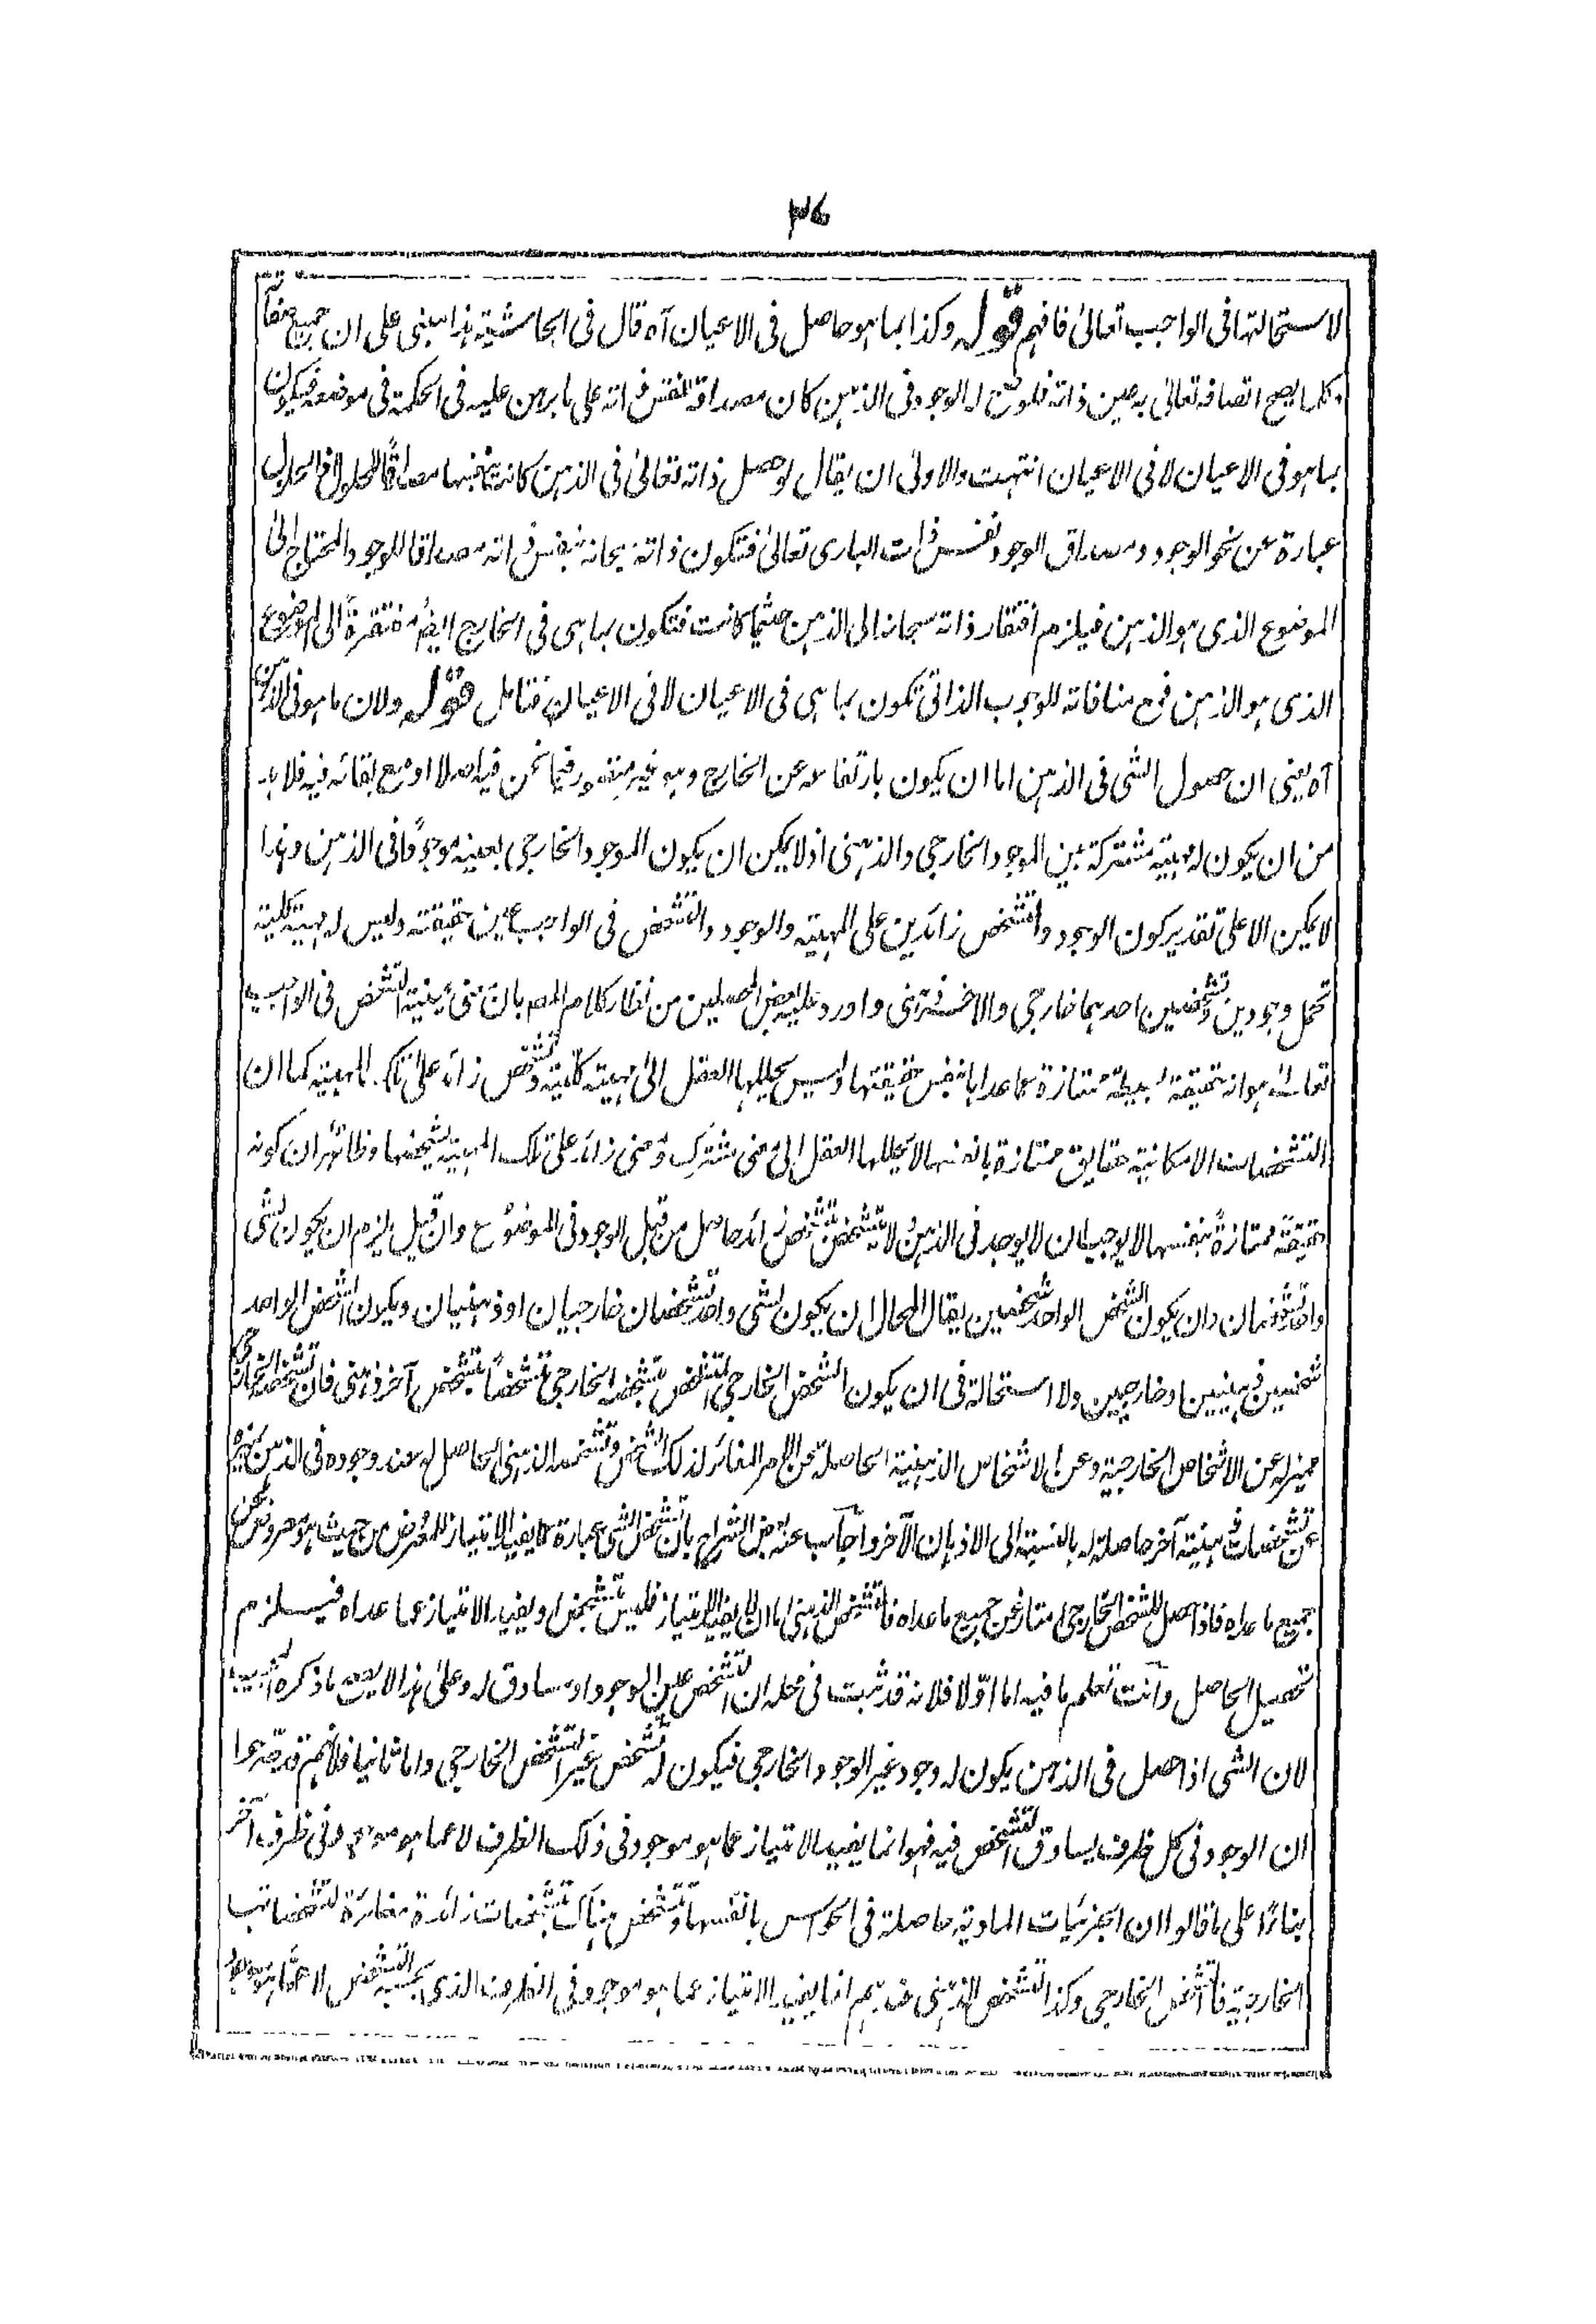 ٣٤
لاستحالتها فى الواجب تعالىٰ فافهم قوله وكذا بما هو حاصل فى الاعيان آه قال فى الحاشية هذا مبنى على ان جميع صفاته
وكل ما يصح اتصافه تعالىٰ به عين ذاته فلو صح له الوجود فى الذهن كان مصداقه نفس ذاته على ما برهن عليه فى الحكمة فى موضعه فيكون
بما هو فى الاعيان لا فى الاعيان انتهت والاولىٰ ان يقال لو حصل ذاته تعالىٰ فى الذهن كانت بنفسها مصداقًا للحلول اذ الحلول
عبارة عن نحو الوجود ومصداق الوجود نفس ذات البارى تعالىٰ فتكون ذاته سبحانه بنفس ذاته مصداقا للوجود المحتاج الىٰ
الموضوع الذى هو الذهن فيلزم افتقار ذاته سبحانه الى الذهن حيثما كانت فتكون بما هى فى الخارج ايضًا مفتقرةً الى الموضوع
الذى هو الذهن فمع منافاته للوجوب الذاتى تكون بما هى فى الاعيان لا فى الاعيان فتامل قوله ولان ما هو فى الذهن
آه يعنى ان حصول الشى فى الذهن اما ان يكون بارتفاعه عن الخارج وهو غير متصور فيما نحن فيه اصلا او مع بقائه فيه فلا بد
من ان يكون له مهية مشتركة بين الموجود الخارجى والذهنى اذ لا يمكن ان يكون الموجود الخارجى بعينه موجودًا فى الذهن وهذا
لا يمكن الا على تقدير كون الوجود والتشخص زائدين على المهية والوجود والتشخص فى الواجب عين حقيقته وليس له مهية كلية
تحمل وجودين وتشخصين احدهما خارجى والاخر ذهنى واورد عليه بعض المحصلين من نظار كلام المصـ بان معنى عينية التشخص فى الواجب
تعالىٰ هو انه حقيقة بسيطة ممتازة عما عداها بنفس حقيقتها وليس يحللها العقل الىٰ مهية كلية وتشخص زائد علىٰ تلك المهية كما ان
التشخصات الامكانية حقايق ممتازة بانفسها لا يحللها العقل الىٰ معنى مشترك ومعنى زائد على تلك المهية يشخصها وظاهر ان كونه
حقيقة ممتازةً بنفسها لا يوجب ان لا يوجد فى الذهن ولا يتشخص بتشخص زائد حاصل من قبل الوجود فى الموضوع وان قيل يلزم ان يكون لشى
واحد تشخصان وان يكون الشخص الواحد شخصين يقال المحال ان يكون لشى واحد تشخصان خارجيان او ذهنيان ويكون الشخص الواحد
شخصين ذهنيين او خارجيين ولا استحالة فى ان يكون الشخص الخارجى المتشخص بتشخصه الخارجى متشخصًا بتشخص آخر ذهنى فان تشخصه الخارجى
مميز له عن الاشخاص الخارجية وعن الاشخاص الذهنية الحاصلة عن الامر المغائر لذلك الشخص وتشخصه الذهنى الحاصل له عند وجوده فى الذهن يميزه
عن تشخصات ذهنية آخر حاصلة له بالنسبة الى الاذهان الآخر واجاب عنه بعض الشراح بان تشخص الشى عبارة عما يفيد الامتياز للمعروض من حيث هو معروض عن
جميع ما عداه فاذا حصل للشخص الخارجى امتاز عن جميع ما عداه فالتشخص الذهنى اما ان لا يفيد الامتياز فليس بتشخص او يفيد الامتياز عما عداه فيلزم
تحصيل الحاصل وانت تعلم ما فيه اما اوّلا فلانه قد ثبت فى محله ان التشخص عين الوجود او مساوق له وعلىٰ هذا لا يصح ما ذكره المجيب
لان الشى اذا حصل فى الذهن يكون له وجود غير الوجود الخارجى فيكون له تشخص غير التشخص الخارجى واما ثانيا فلانهم قد صرّحوا
ان الوجود فى كل ظرف يساوق التشخص فيه فهو انما يفيد الامتياز عما هو موجود فى ذلك الظرف لا عما هو موجود فى ظرف آخر
بناءًا على ما قالوا ان الجزئيات المادية حاصلة فى الحواس بانفسها وتتشخص هناك بتشخصات زائدة مغائرة لتشخصاتها
الخارجية فالتشخص الخارجى وكذا التشخص الذهنى عندهم انما يفيد الامتياز عما هو موجود فى الظرف الذى بحسبه التشخص لا عما هو موجود